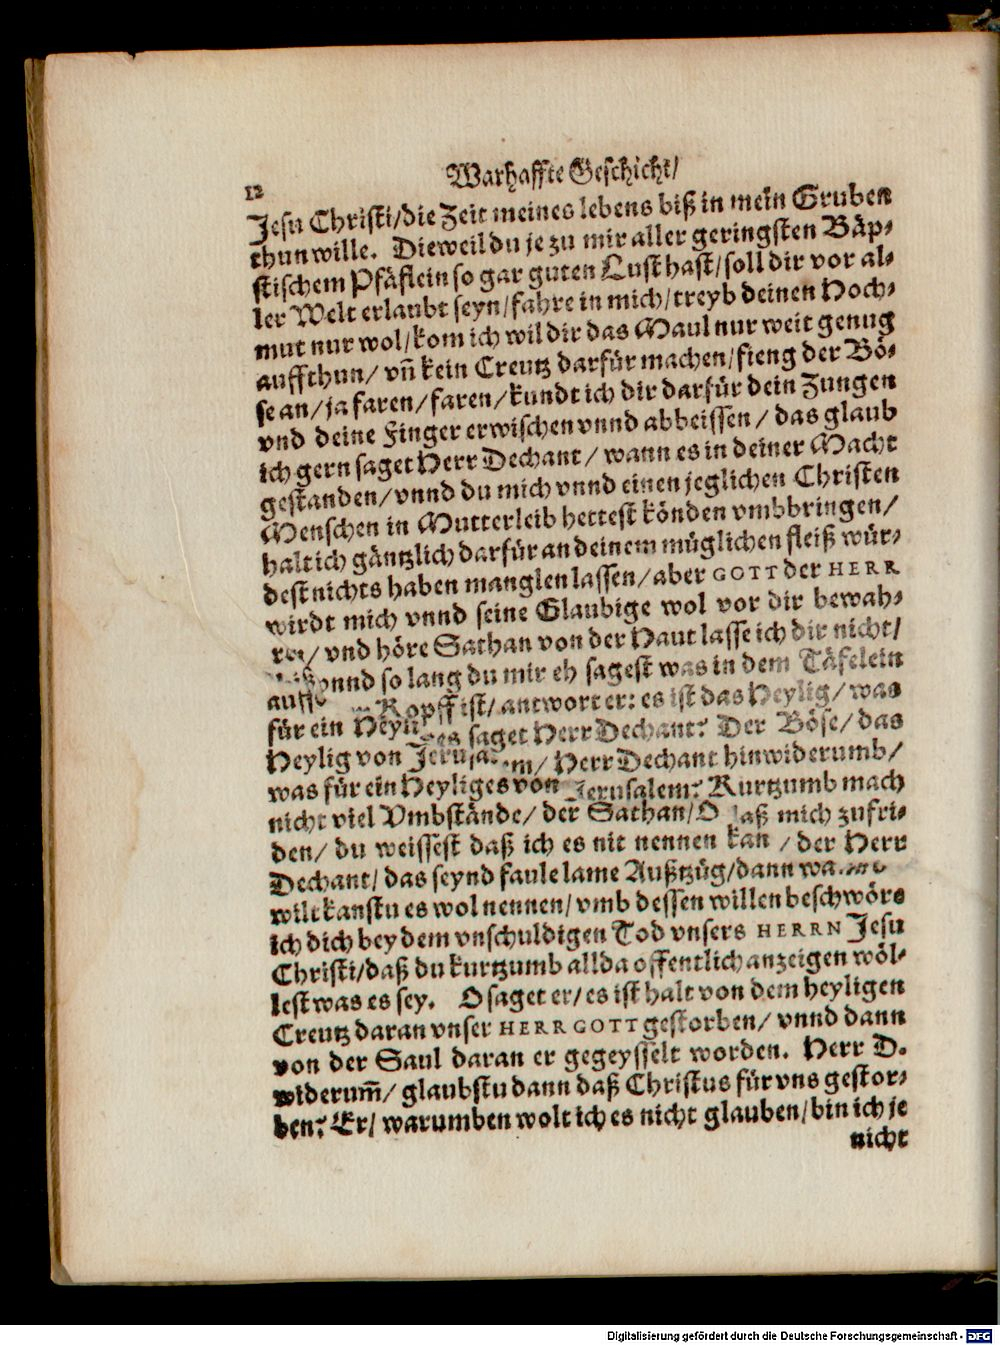 12
Warhaffte Geschicht/
Jesu Christi/die Zeit meines lebens biß in mein Gruben
thun wille. Dieweil du je zu mir aller geringsten Bäp⸗
stischem Pfäflein so gar guten Lust hast/soll dir vor al⸗
ler Welt erlaubt seyn/fahre in mich/treyb deinen Hoch⸗
mut nur wol/kom ich wil dir das Maul nur weit genug
auffthun/ vn̄ kein Creutz darfür machen/fieng der Bö⸗
se an/ja faren/faren/kundt ich dir darfür dein Zungen
vnd deine Finger erwischen vnnd abbeissen/ das glaub
ich gern saget Herr Dechant/ wann es in deiner Macht
gestanden/vnnd du mich vnnd einen jeglichen Christen
Menschen in Mutterleib hettest könden vmbbringen/
halt ich gäntzlich darfür an deinem müglichen fleiß wür⸗
dest nichts haben manglen lassen/aber GOTT der HERR
wirdt mich vnnd seine Glaubige wol vor dir bewah⸗
ren/ vnd höre Sathan von der Haut lasse ich dir nicht/
vnnd so lang du mir eh sagest was in dem Täfelein
auff Kopff ist/ antwort er: es ist das Heylig/ was
für ein saget Herr Dechant? Der Böse/ das
Heylig von Jerusalem/ Herr Dechant hinwiderumb/
was für ein Heyliges von Jerusalem? Kurtzumb mach
nicht viel Vmbstände/ der Sathan/O laß mich zufri⸗
den/ du weissest daß ich es nit nennen kan / der Herr
Dechant/ das seynd faule lame Außtzüg/dann
wilt kanstu es wol nennen/ vmb dessen willen beschwöre
ich dich bey dem vnschuldigen Tod vnsers HERRN Jesu
Christi/daß du kurtzumb allda offentlich anzeigen wöl⸗
lest was es sey. O saget er/ es ist halt von dem heyligen
Creutz daran vnser HERR GOTT gestorben/ vnnd dann
von der Saul daran er gegeysselt worden. Herr D.
widerum̄/ glaubstu dann daß Christus für vns gestor⸗
ben? Er/ warumben wolt ich es nicht glauben/bin ich je
nicht
Digitalisierung gefördert durch die Deutsche Forschungsgemeinschaft - DFG